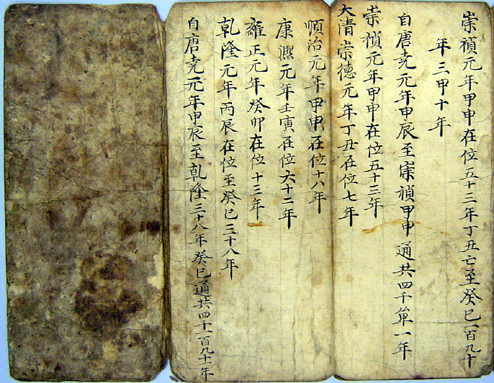 崇禎元年甲申在位五十三年丁丑亡至癸巳一百九十
年三甲十年
自唐尭元年甲辰至崇禎甲申通共四千單一年
崇禎元年甲申在位五十三年
大清崇德元年丁丑在位七年
順治元年甲申在位十八年
康熙元年壬寅在位六十二年
雍正元年癸卯在位十三年
乾隆元年丙辰在位至癸巳三十八年
自唐尭元年甲辰至乾隆三十八年癸巳通共四千一百九十年